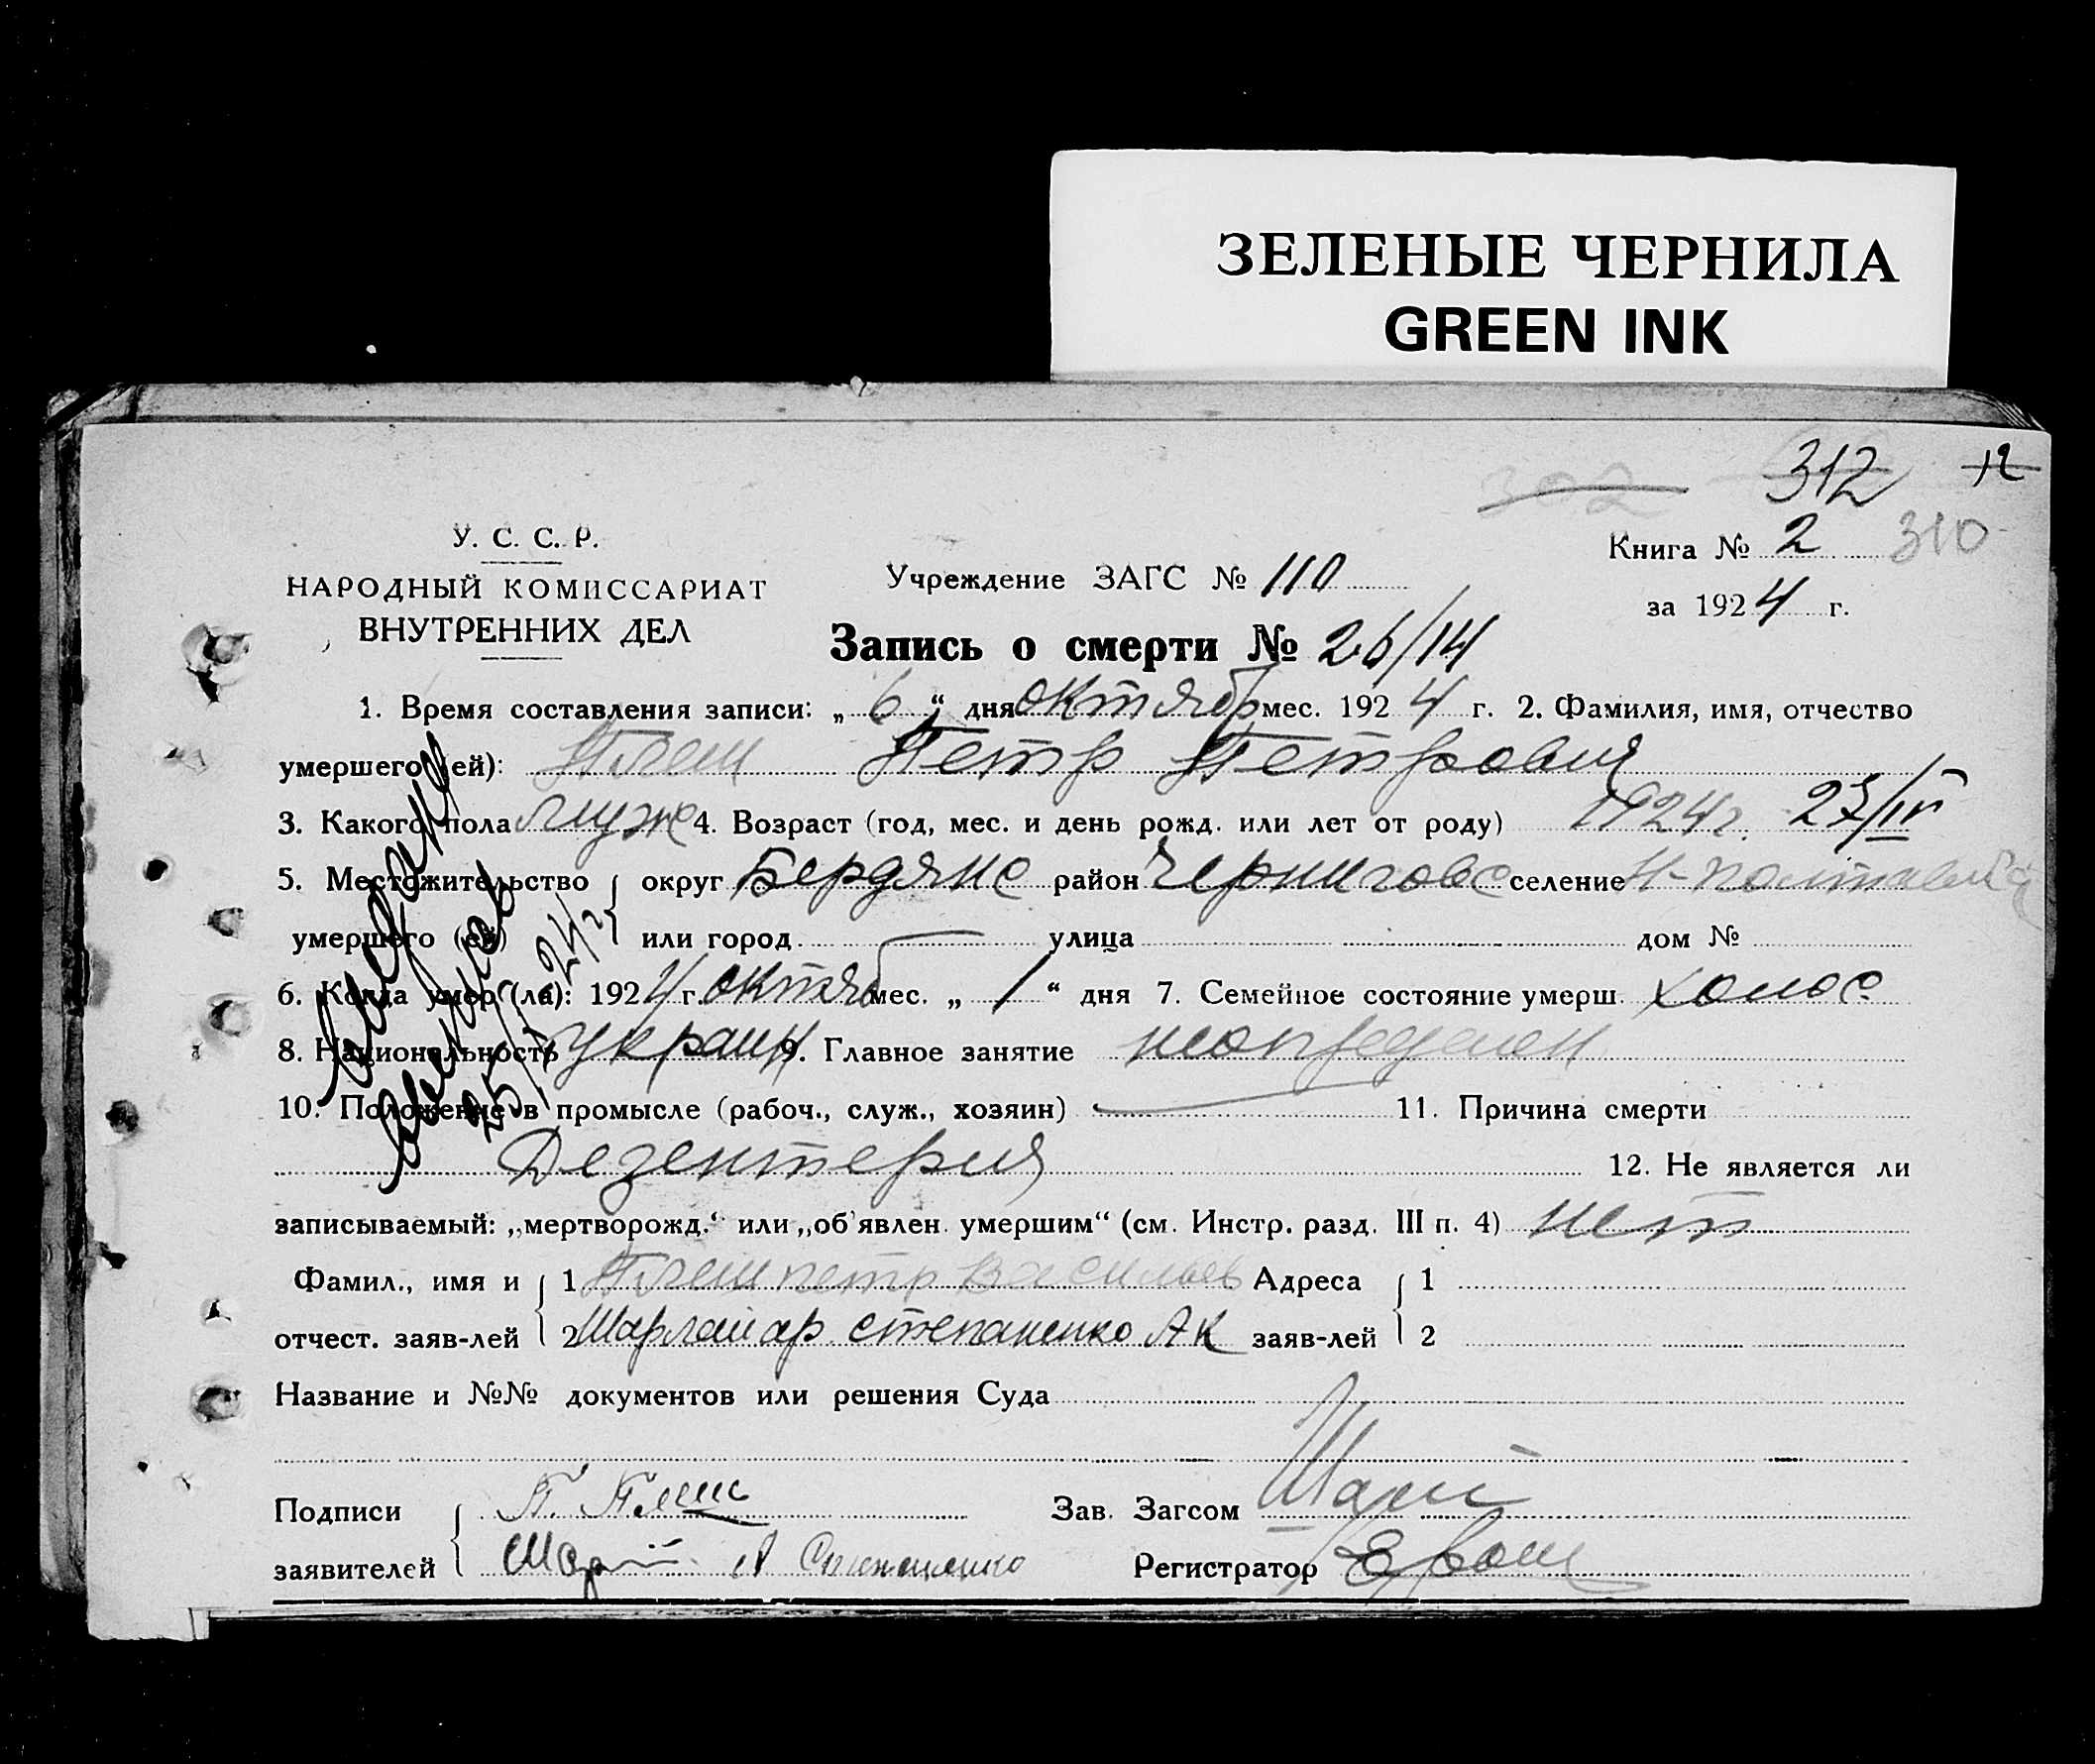 ЗЕЛЕНЫЕ ЧЕРНИЛА
GREEN INK
302 312 12
У. С. С. Р.
НАРОДНЫЙ КОМИССАРИАТ
ВНУТРЕННИХ ДЕЛ
Учреждение ЗАГС № 110
Книга № 2 310
за 1924 г.
Запись о смерти № 26/14
1. Время составления записи: „ 6 “ дня октябр мес. 1924 г. 2. Фамилия, имя, отчество
умершего (ей): Плеш Петр Петрович
3. Какого пола муж 4. Возраст (год, мес. и день рожд. или лет от роду) 1924 г. 27/IV
5. Местожительство округ Бердянс район Черниговс селение Н-Полтавка
умершего (ей) или город улица дом №
6. Когда умер (ла): 1924 г. октяб мес. „ 1 “ дня 7. Семейное состояние умерш. холос
8. Национальность украин 9. Главное занятие неопределен
10. Положение в промысле (рабоч., служ., хозяин) 11. Причина смерти
Дезентерия 12. Не является ли
записываемый: „мертворожд.“ или „об'явлен умершим“ (см. Инстр. разд. III п. 4) нет
Фамил., имя и 1 Плеш Петр Васильев Адреса 1
отчест. заяв-лей 2 степаненко АК заяв-лей 2
Название и №№ документов или решения Суда
Подписи П. Плеш Зав. Загсом
заявителей А Степаненко Регистратор
25/ 24 г